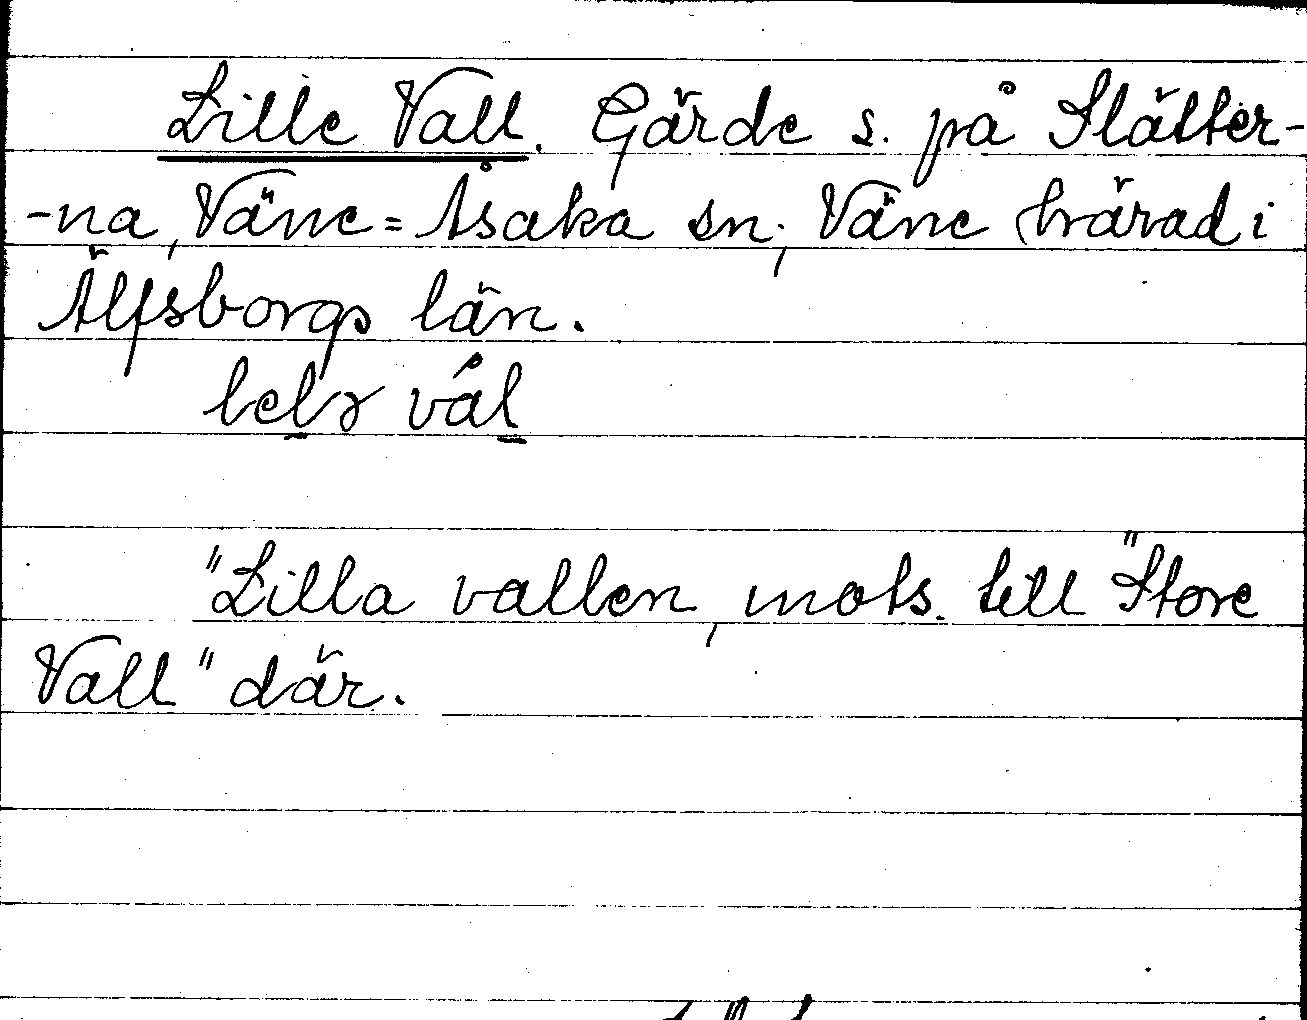 Lille Vall. Gärde s. på Slätter-
-na, Väne=Åsaka sn; Väne härad i
Älfsborgs län.
"Lilla vallen, mots. till "Store
Vall" där.